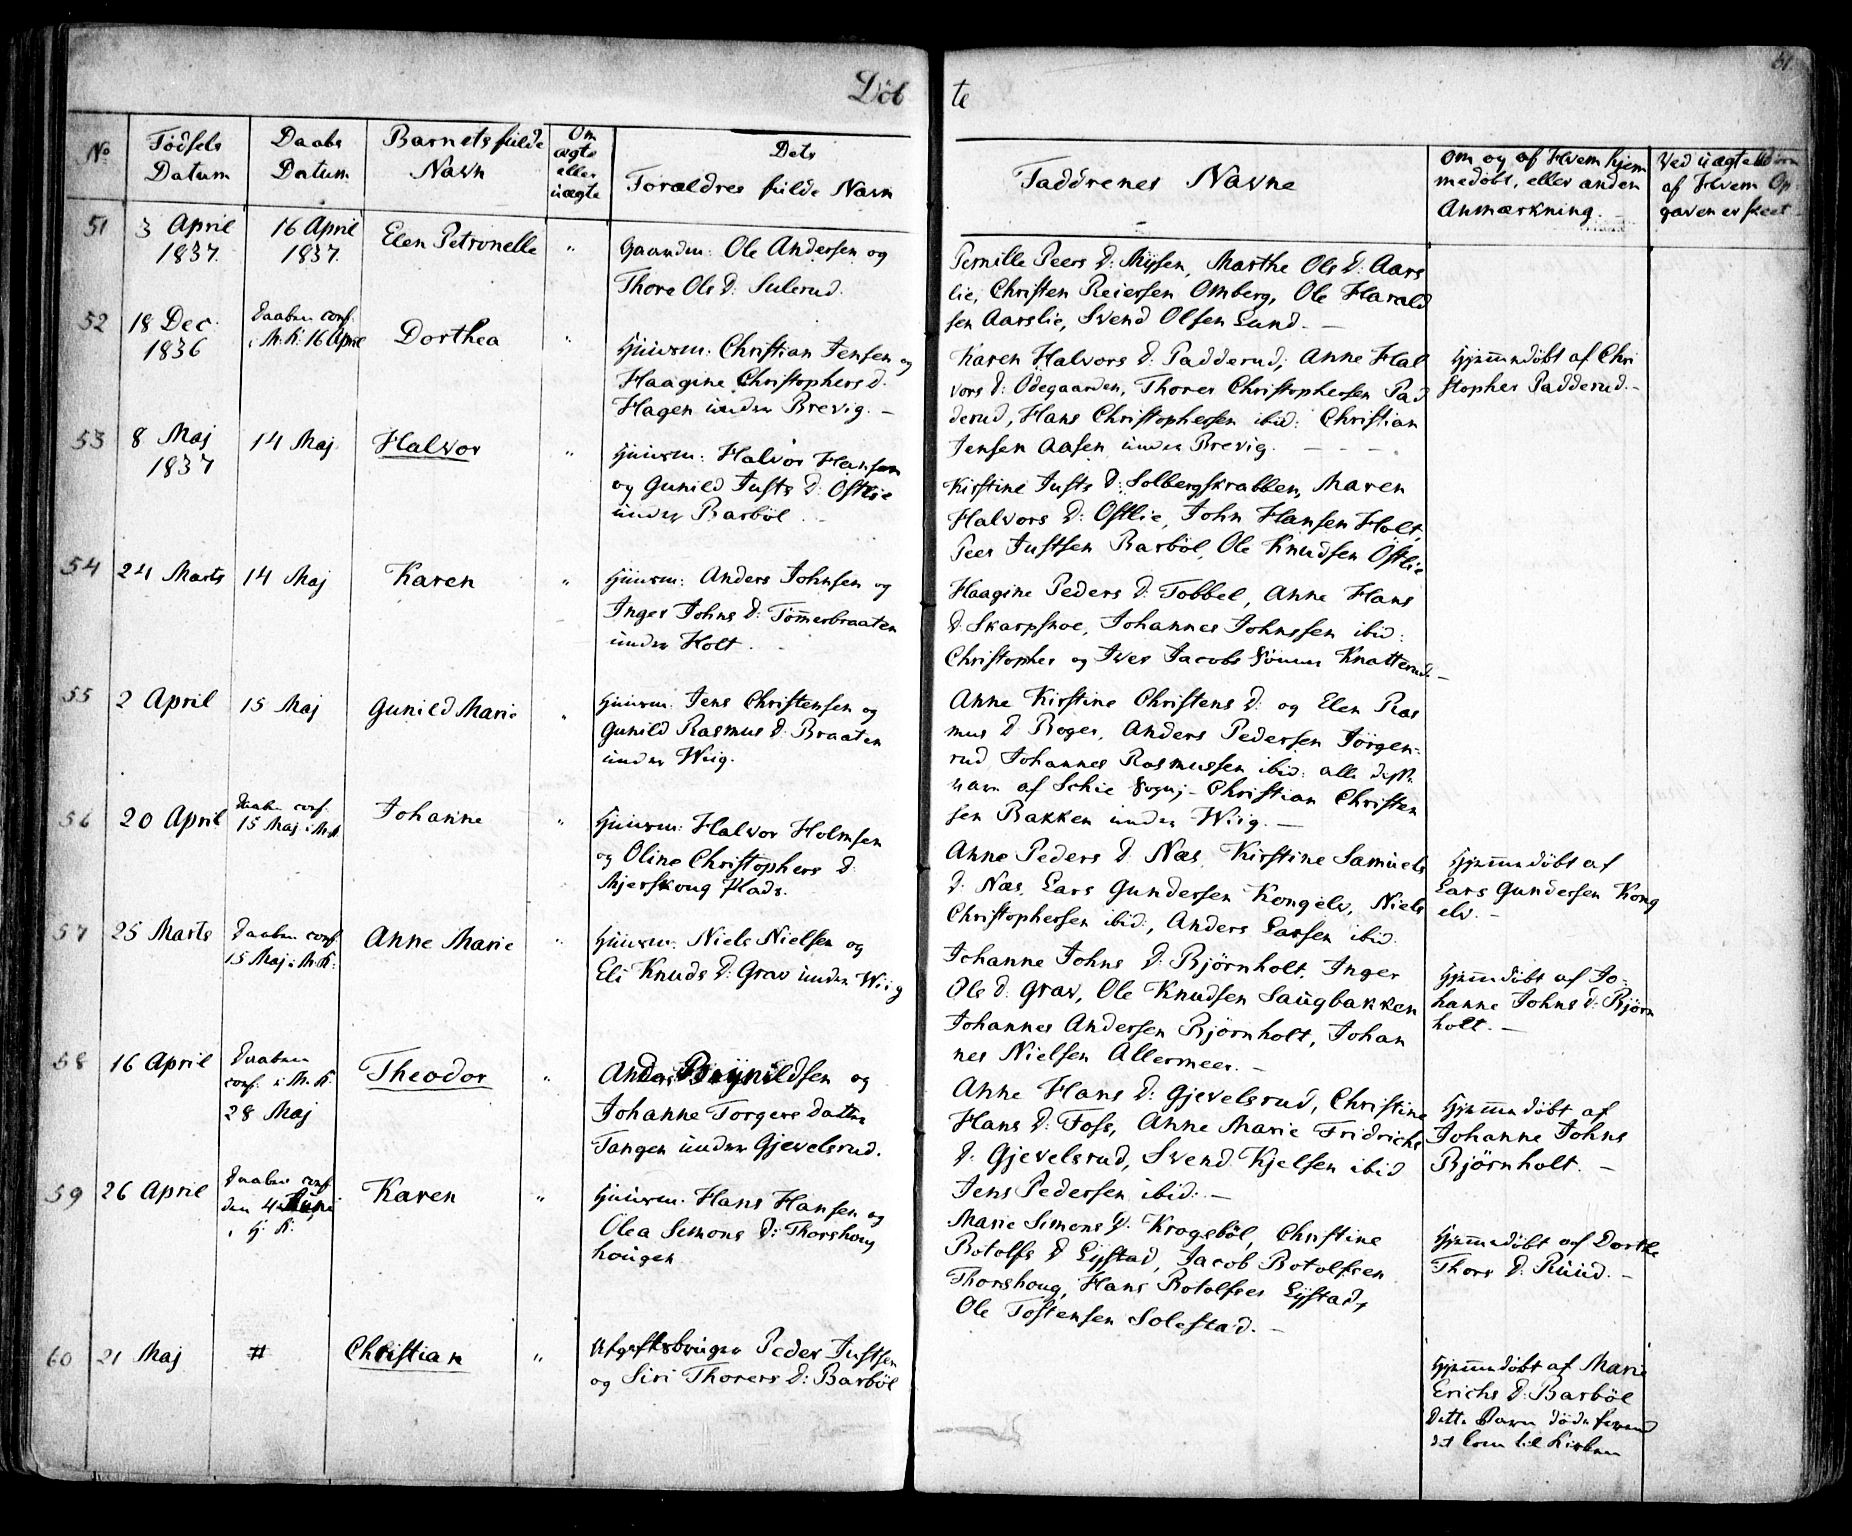 Döbte
61
No
Födsels Datum
Daabs Datum
Barnets fulde Navn
Om ægte eller uægte
Dets Forældres fulde Navn
Faddrenes Navne
Om og af Hvem hjem
medøbt, eller anden
Anmærkning.
Ved uægte Börn
af Hvem Op
gaven er skeet
51
3 April 1837.
16 April 1837.
Elen Petronelle
"
Gaardm: Ole Andersen og
Thore Ols D: Sulerud.
Pernille Peers D: Mysen, Marthe Ols D: Aars
lie, Christen Reiersen Omberg, Ole Harald
sen Aarslie, Svend Olsen Lund. —
52
18 Dec: 1836
Daaben conf. i M.K. 16 April
Dorthea
"
Huusm: Christian Jensen og
Haagine Christophers d.
Hagen under Brevig. —
Karen Halvors D. Padderud, Anne Hal
vors D: Ødegaarden, Thorer Christophersen Pad
derud, Hans Christophersen ibid: Christian
Jensen Aasen under Brevig.
Hjemmedøbt af Chri
stopher Padderud. —
53
8 Maj 1837
14 Maj
Halvor
"
Huusm: Halvor Hansen
og Gunild Justs D: Østlie
under Barböl.
Kirstine Justs D: Solbergskrabben, Maren
Halvors D: Ostlie, John Hansen Holt,
Peer Justsen Barböl, Ole Knudsen Östlie
54
24 Marts
14 Maj
Karen
"
Huusm: Anders Johnsen og
Inger Johns D: Tömmerbraaten
under Holt.
Haagine Peders D: Tobbel, Anne Hans
D. Skarpsnoe, Johannes Johnssen ibid:
Christopher og Iver Jacobs Sönner Knatterud —
55
2 April
15 Maj
Gunild Marie
"
Huusm: Jens Christensen og
Gunild Rasmus D: Braaten
under Wiig.
Anne Kirstine Christens D: og Elen Ras
mus D Roger, Anders Pedersen Jörgen
rud Johannes Rasmussen ibid: alle
af Schie Sogn, — Christian Christen
sen Bakken under Wiig. —
56
20 April
Daaben conf. 15 Maj i M.K
Johanne
"
Huusm: Halvor Holmsen
og Oline Christophers D
Mjerskoug Plads.
Anne Peders D Næs, Kirstine Samuels
D: Næs, Lars Gundersen Kongelv, Niels
Christophersen ibid:, Anders Larsen ibid.
Hjemmedøbt af
Lars Gundersen Kong
elv. —
57
25 Marts
Daaben conf. 15 Maj i M.K.
Anne Marie
"
Huusm: Niels Nielsen og
Eli Knuds D: Grav under Wiig
Johanne Johns D: Björnholt, Inger
Ols d: Grav, Ole Knudsen Saugbakken
Johannes Andersen Björnholt, Johan
nes Nielsen Allermeer. —
Hjemmedöbt af Jo-
hanne Johns D: Björn
holt. —
58
16 April
Daaben conf. i M.K. 28 Maj
Theodor
"
Anders Brynildsen og
Johanne Torgers datter
Tangen under Gjevelsrud.
Anne Hans D: Gjevelsrud, Christine
Hans D: Foss, Anne Marie Fridrichs
D: Gjevelsrud, Svend Kjelsen ibid
Jens Pedersen ibid: —
Hjemmedöbt af
Johanne Johns
Björnholt. —
59
26 April
Daaben conf. den 4 Juni i H K.
Karen
"
Huusm: Hans Hansen og
Olea Simons D: Thorshoug
hougen
Marie Simens D: Krogsböl, Christine
Botolfs D Lystad, Jacob Botolfsen
Thorshoug, Hans Botolfsen Lystad,
Ole Tostensen Solestad. —
Hjemmedöbt af Dorthe
Thors D: Ruud. —
60
21 Maj
#
Christian
"
Peder Justsen
og Siri Thorers D: Barböl
Hjemmedöbt af Marie
Erichs D: Barböl
Dette Barn døde førend
det kom til Kirken